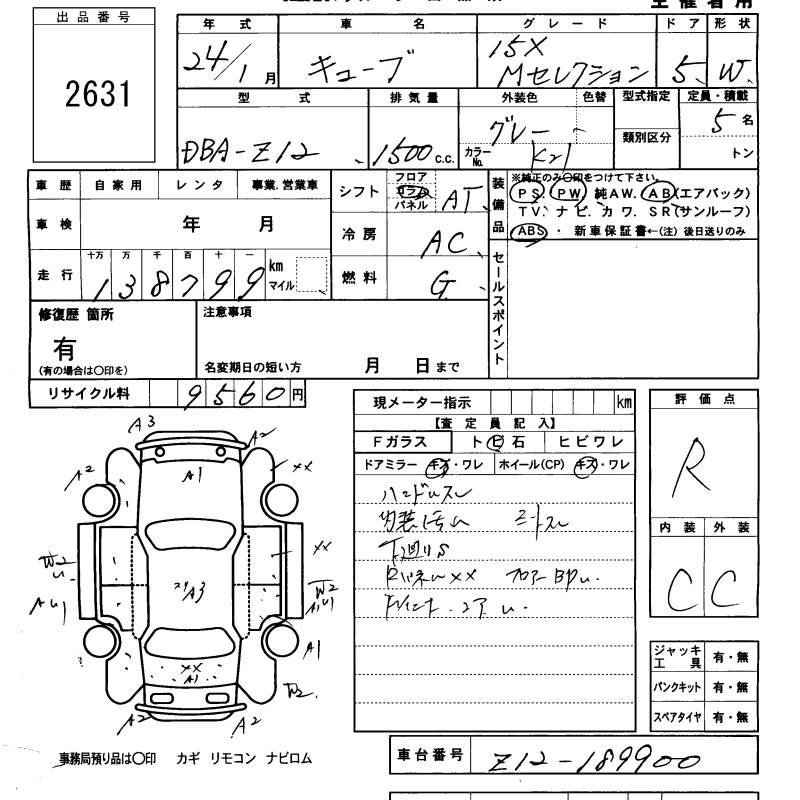 主催者用
出品番号
2631
年式 車名 グレード ドア 形状
24/1月 キューブ 15X Mセレクション 5 W
型式 排気量 外装色 色替 型式指定 定員・積載
DBA-Z12 1500c.c. グレー カラーNo. K21 類別区分 5名 トン
車歴 自家用 レンタ 事業.営業車
車検 年 月
走行 十万 万 千 百 十 一
138799 km マイル
シフト フロア コラム パネル AT
冷房 AC
燃料 G
装備品 ※純正のみ〇印をつけて下さい。
PS. PW. 純AW. AB(エアバック)
TV. ナビ. カワ. SR(サンルーフ)
ABS・新車保証書←(注) 後日送りのみ
セールスポイント
修復歴 箇所
有
(有の場合は〇印を)
注意事項
名変期日の短い方 月 日まで
リサイクル料 9560円
現メーター指示 km
【査定員記入】
Fガラス トビ石 ヒビワレ
ドアミラー キズ・ワレ ホイール(CP) キズ・ワレ
ハンドルスレ
内装汚れ シートスレ
下廻りS
評価点
R
内装 外装
C C
A3
A2
A2
A1
XX
XX
W2
A3
W2
A1
XX
A1
W2
A2
A2
ジャッキ工具 有・無
パンクキット 有・無
スペアタイヤ 有・無
事務局預り品は〇印 カギ リモコン ナビロム
車台番号 Z12-189900